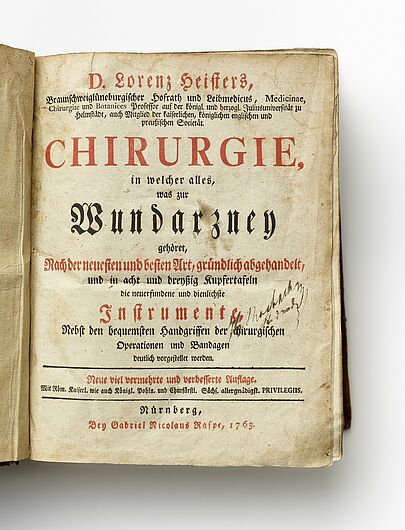 D. Lorenz Heisters,
Braunschweiglüneburgischer Hofrath und Leibmedicus, Medicinae,
Chirurgiae und Botanices Professor auf der königl. und herzogl. Juliusuniversität zu
Helmstädt, auch Mitglied der kaiserlichen, königlichen englischen und
preußischen Societät.
CHIRURGIE,
in welcher alles,
was zur
Wundarzney
gehöret,
Nach der neuesten und besten Art, gründlich abgehandelt,
und in acht und dreyßig Kupfertafeln
die neuerfundene und dienlichste
Instrumente,
Nebst den bequemsten Handgriffen der chirurgischen
Operationen und Bandagen
deutlich vorgestellet werden.
Neue viel vermehrte und verbesserte Auflage.
Mit Röm. Kaiserl. wie auch Königl. Pohln. und Churfürstl. Sächs. allergnädigst. PRIVILEGIIS.
Nürnberg,
Bey Gabriel Nicolaus Raspe, 1763.